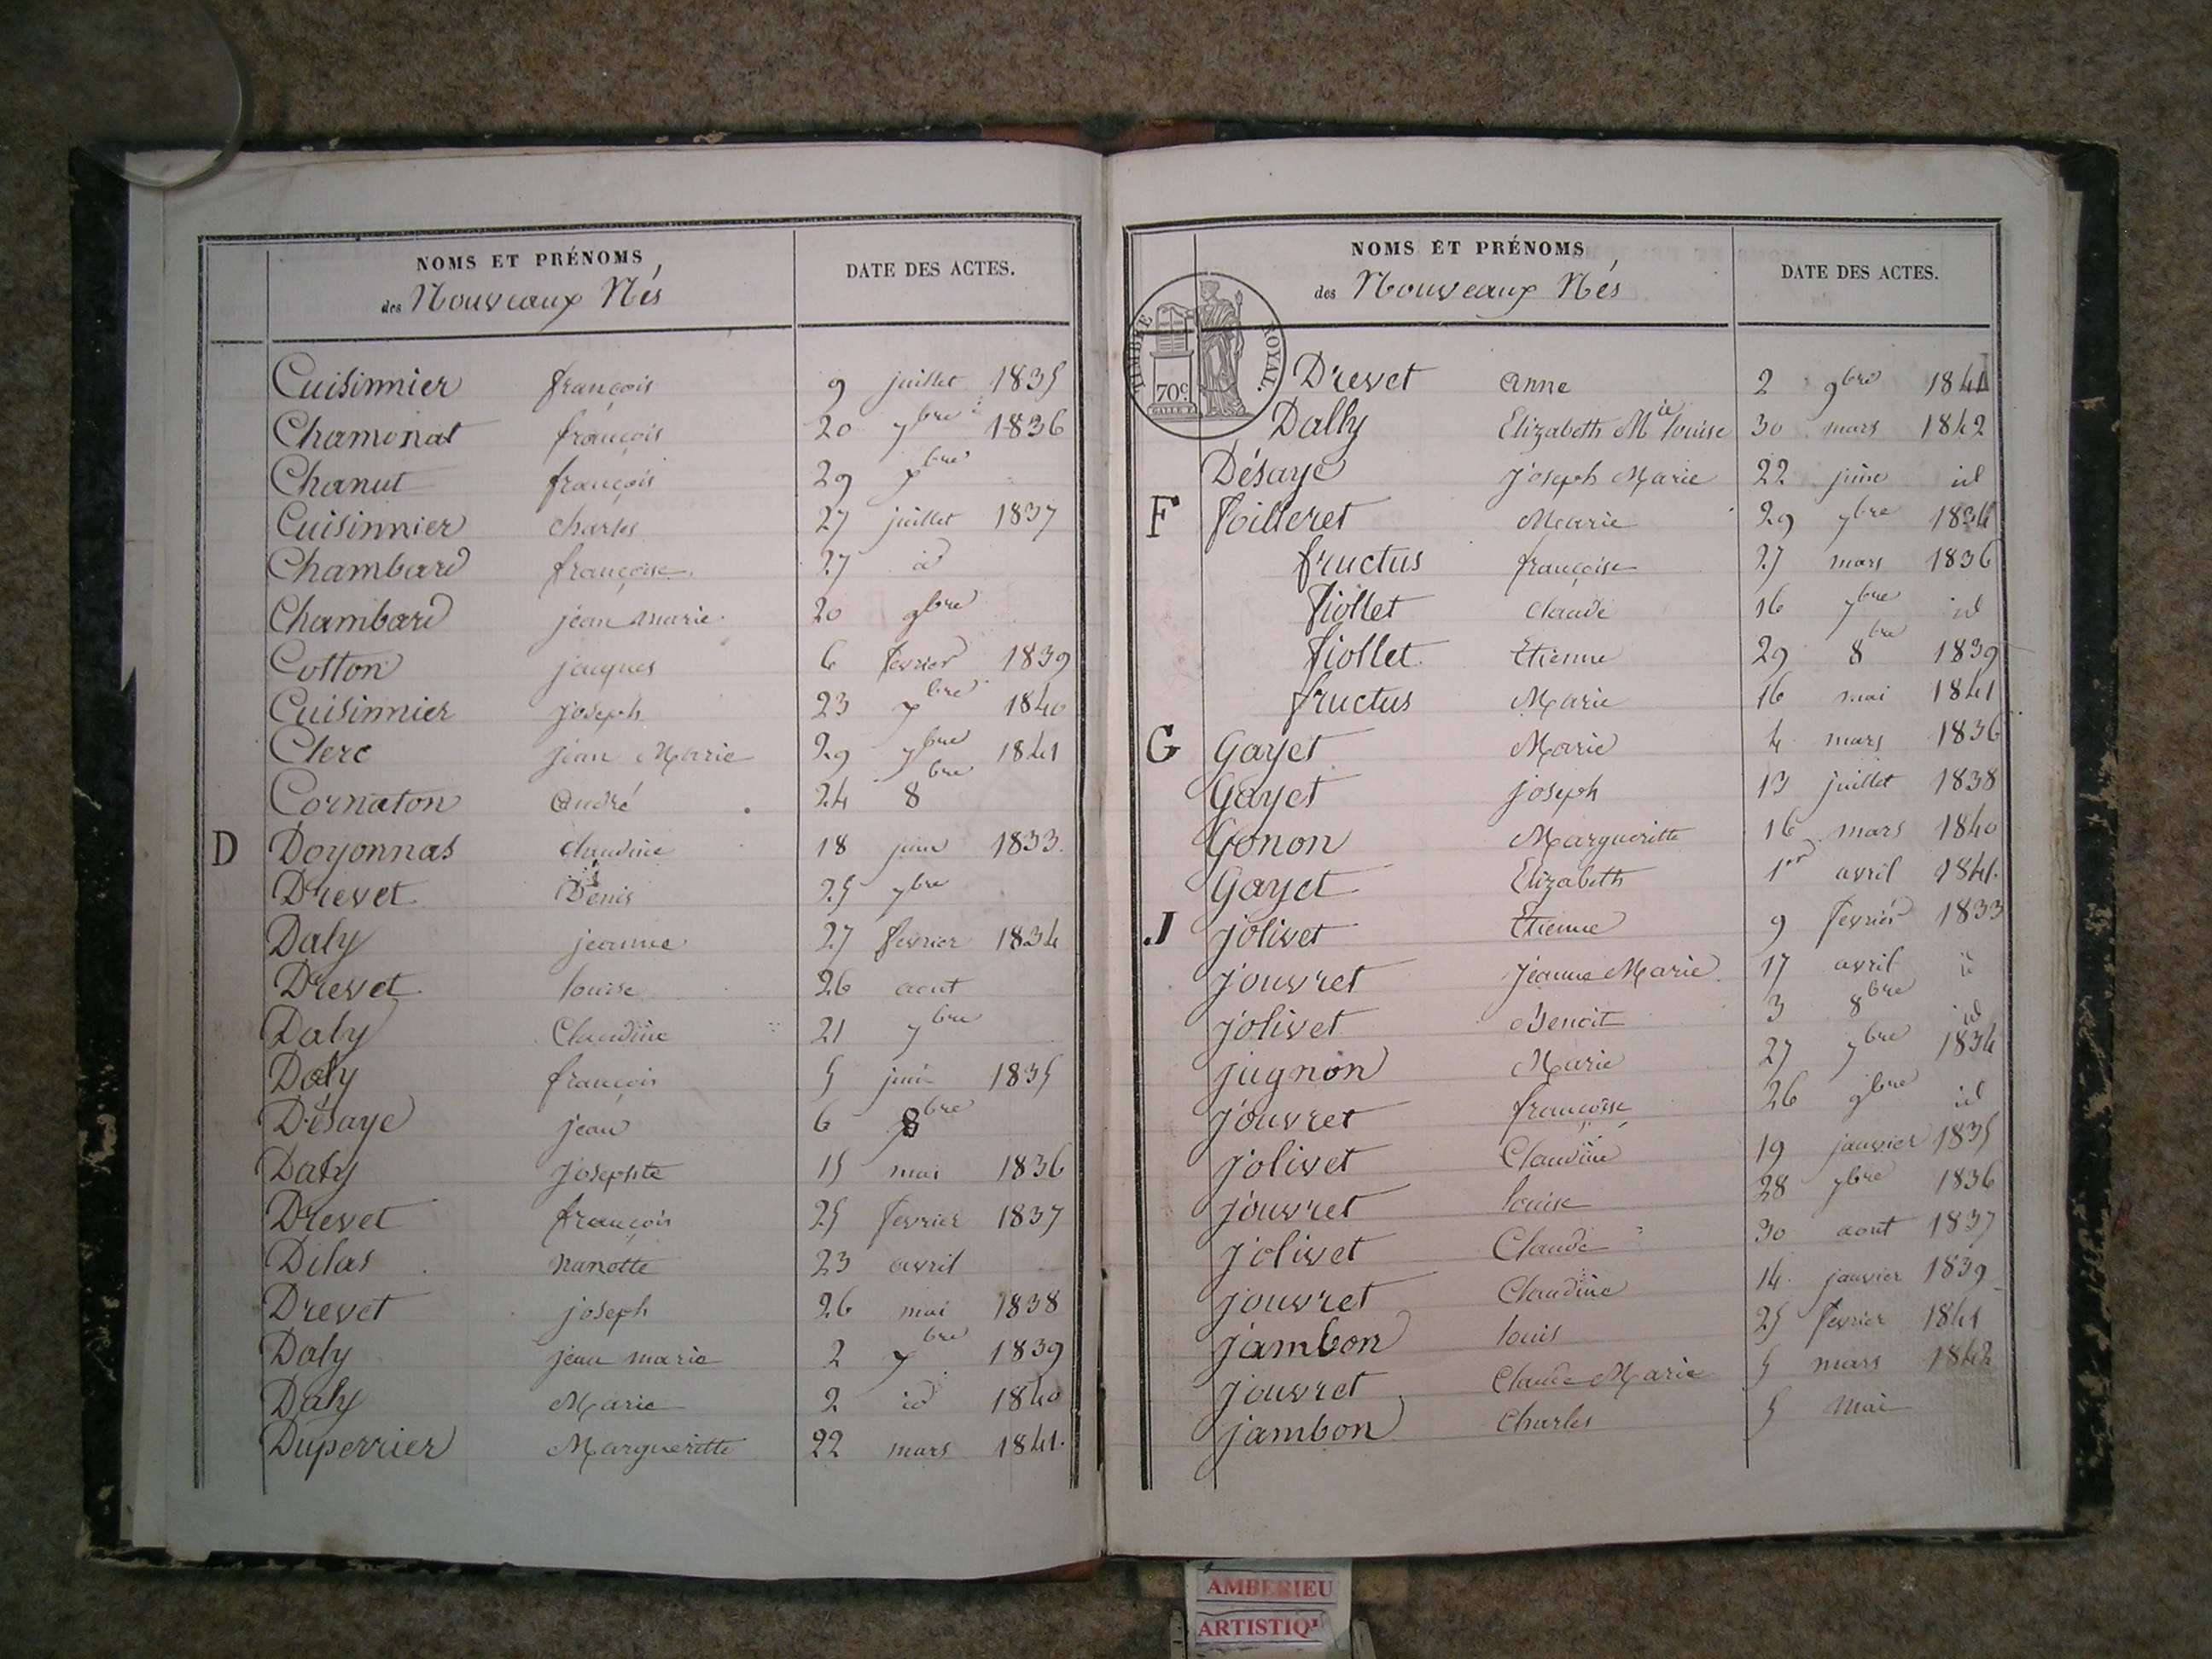 NOMS ET PRÉNOMS
DATE DES ACTES.
des Nouveaux Nés
Cuisinnier françois 9 juillet 1835
Chamonat françois 20 7bre 1836
Chanut françois 29 7bre
Cuisinnier charles 27 juillet 1837
Chambard françoise 27 id
Chambard jean marie 20 9bre
Cotton jacques 6 fevrier 1839
Cuisinnier joseph 23 7bre 1840
Clerc jean Marie 29 7bre 1841
Cornaton andré 24 8bre
D Doyonnas claudine 18 juin 1833.
Drevet Denis 25 7bre
Daly jeanne 27 fevrier 1834
Drevet louise 26 aout
Daly Claudine 21 7bre
Daly françois 5 juin 1835
Désaye jean 6 8bre
Daly Josephte 15 mai 1836
Drevet françois 25 fevrier 1837
Dilas nanette 23 avril
Drevet joseph 26 mai 1838
Daly jean marie 2 7bre 1839
Daly Marie 2 id 1840
Duperrier Margueritte 22 mars 1841.
NOMS ET PRÉNOMS
DATE DES ACTES.
des Nouveaux Nés
TIMBRE ROYAL.
70c
Drevet anne 2 9bre 1841
Dally Elizabeth Mie louise 30 mars 1842
Désaye Joseph Marie 22 juin id
F Foilleret Marie 29 7bre 1834
fructus françoise 27 mars 1836
fiollet claude 16 7bre id
fiollet Etienne 29 8bre 1839
fructus Marie 16 mai 1841
G Gayet Marie 4 mars 1836
Gayet joseph 13 juillet 1838
Gonon Margueritte 16 mars 1840
Gayet Elizabeth 1er avril 1841.
J jolivet Etienne 9 fevrier 1833
jouvret jeanne Marie 17 avril id
jolivet Benoit 3 8bre id
jugnon Marie 27 7bre 1834
jouvret françoise 26 9bre id
jolivet Claudine 19 janvier 1835
jouvret louise 28 7bre 1836
jolivet Claude 30 aout 1837
jouvret Claudine 14 janvier 1839
jambon louis 25 fevrier 1841
jouvret Claude Marie 5 mars 1842
jambon Charles 5 mai
AMBERIEU
ARTISTIQ